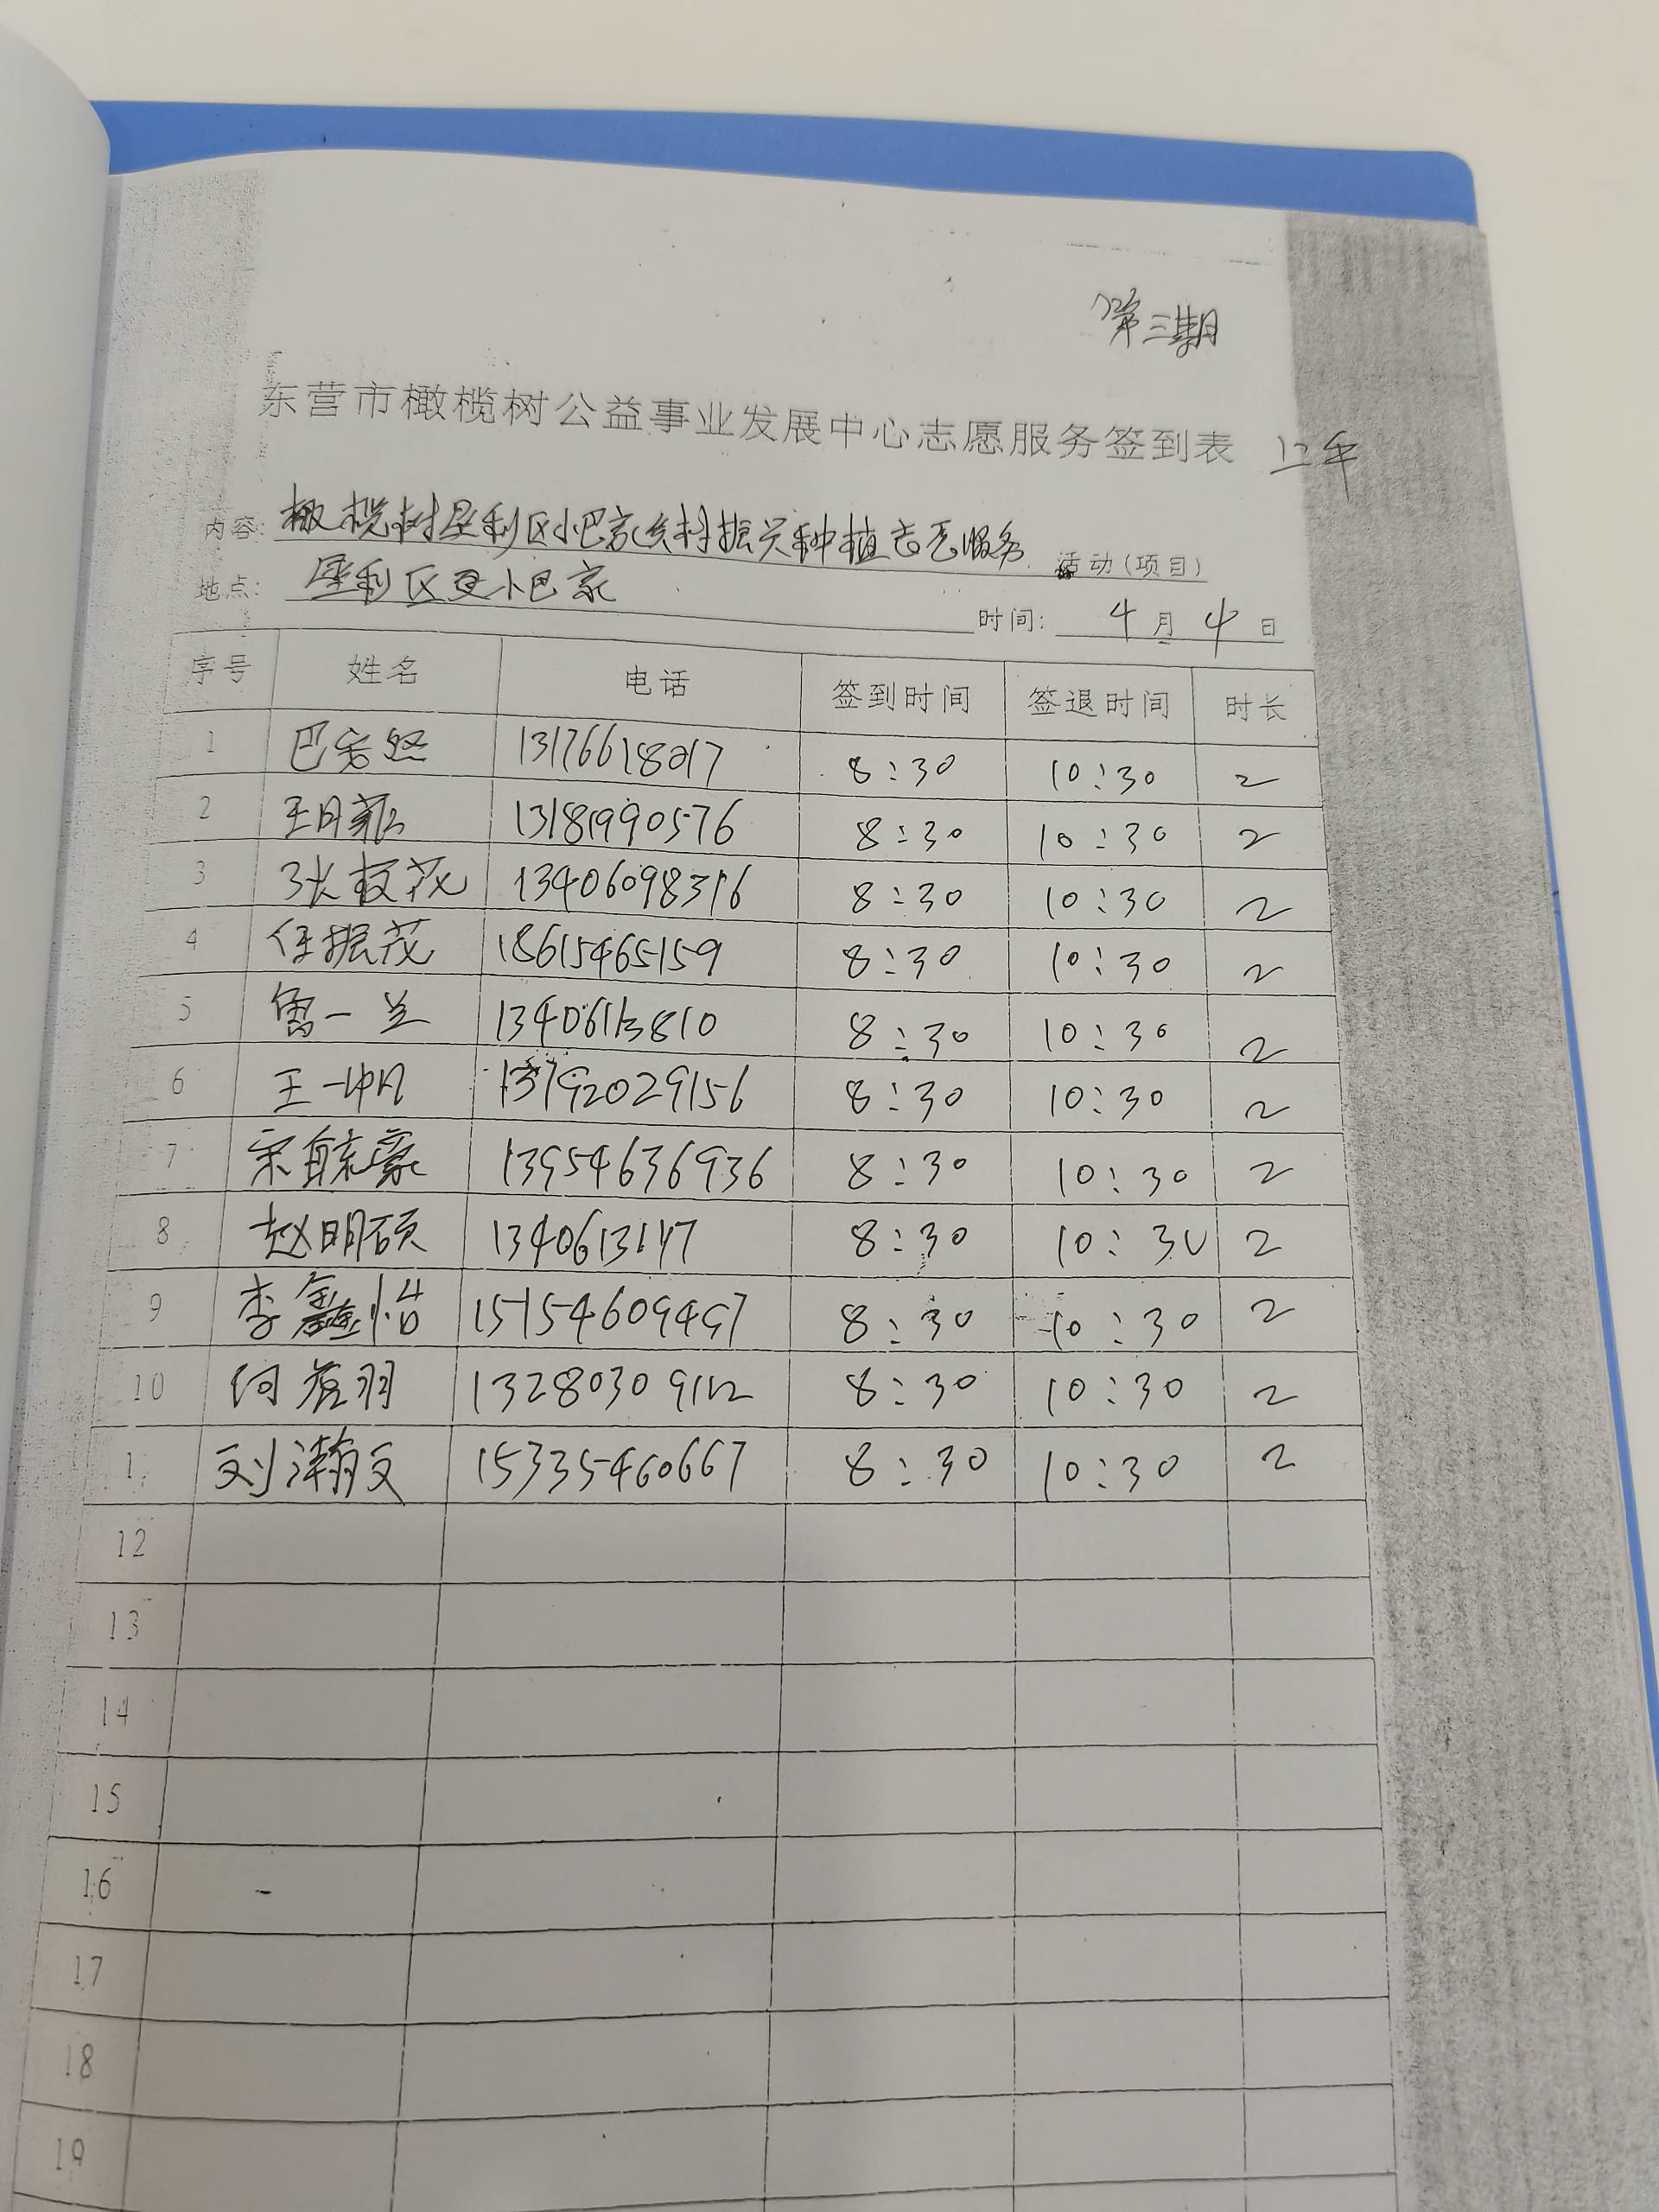 第三期
东营市橄榄树公益事业发展中心志愿服务签到表 上午
内容: 橄榄树垦利区小巴家乡村振兴种植志愿服务 活动(项目)
地点: 垦利区 小巴家
时间: 4月4日
序号 姓名 电话 签到时间 签退时间 时长
1 巴 131766180217 8:30 10:30 2
2 王月 13181990576 8:30 10:30 2
3 张 茂 13406098316 8:30 10:30 2
4 任振茂 18615465159 8:30 10:30 2
5 雷一兰 13406113810 8:30 10:30 2
6 王一帆 13792029156 8:30 10:30 2
7 宋毓豪 13954636936 8:30 10:30 2
8 赵明硕 8:30 10:30 2
9 李鑫怡 15154609497 8:30 10:30 2
10 何 羽 13280309112 8:30 10:30 2
11 刘瀚文 15335460667 8:30 10:30 2
12
13
14
15
16
17
18
19